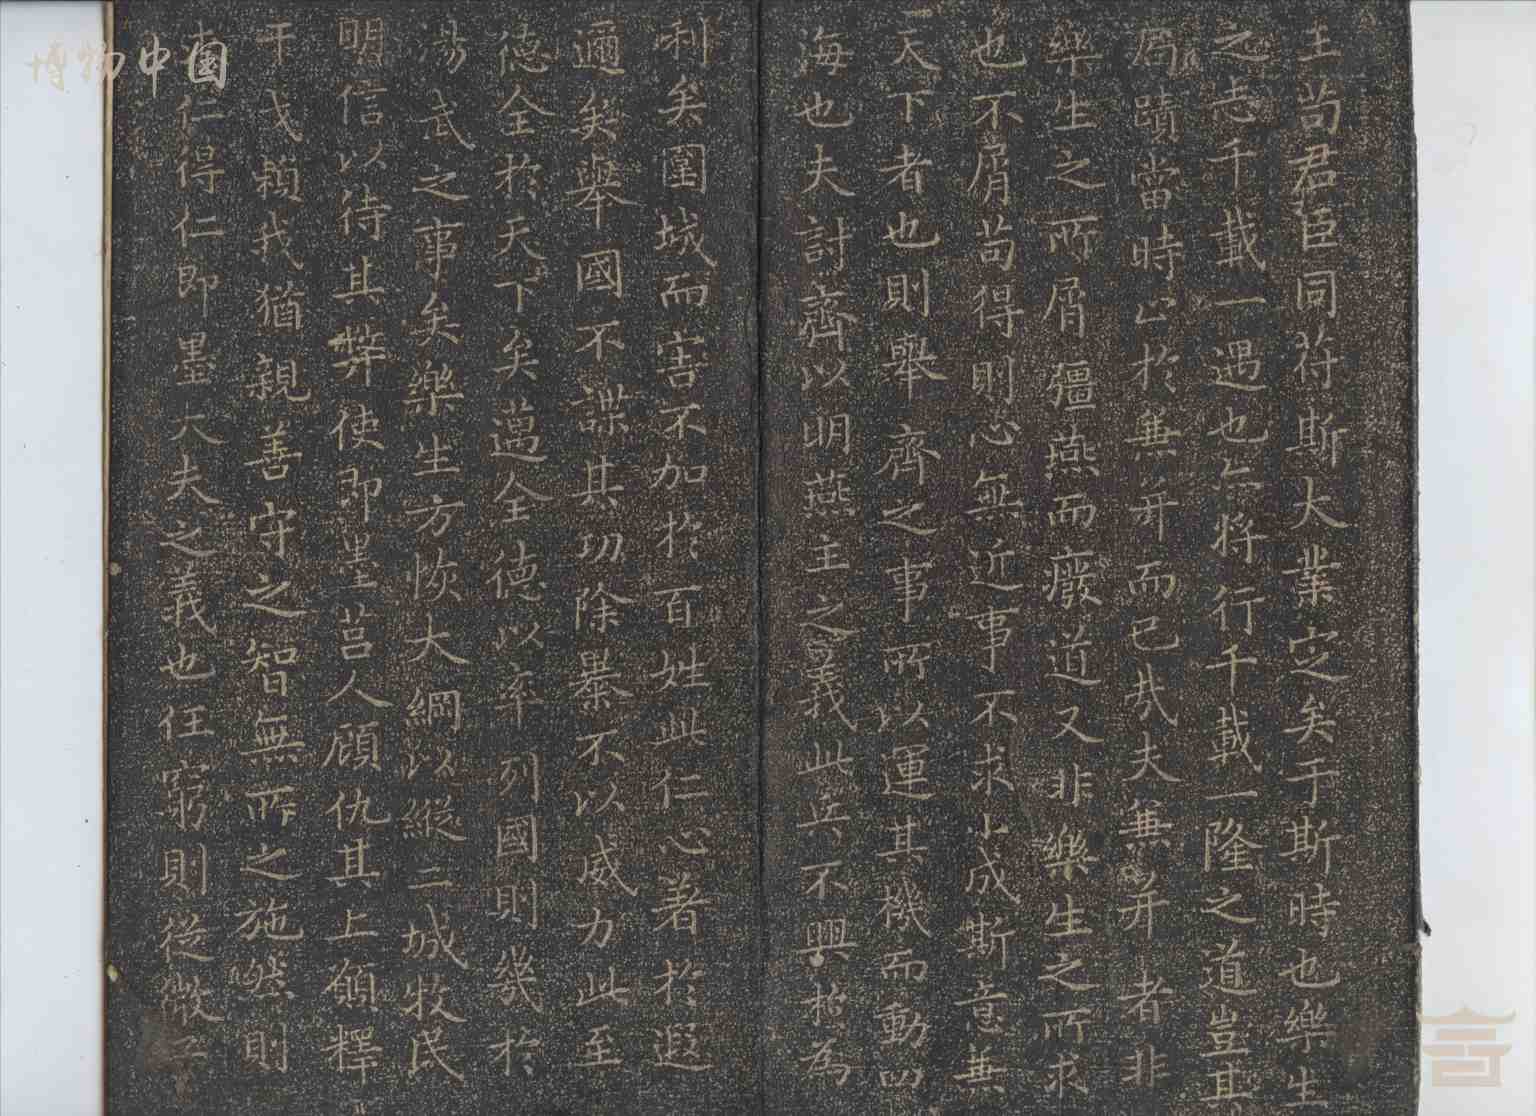 主苟君臣同苻斯大業定矣于斯時也樂生
之志千載一遇也亦將行千載一隆之道豈其
局蹟當時止於兼并而已哉夫兼并者非
樂生之所屑彊燕而廢道又非樂生之所求
也不屑苟得則心無近事不求小成斯意兼
天下者也則舉齊之事所以運其機而動四
海也夫討齊以明燕主之義此兵不興於為
利矣圍城而害不加於百姓此仁心著於遐
邇矣舉國不謀其功除暴不以威力此至
德全於天下矣邁全德以率列國則幾於
湯武之事矣樂生方恢大綱以縱二城牧民
明信以待其弊使即墨莒人顧仇其上願釋
干戈賴我猶親善守之智無所之施然則
仁得仁即墨大夫之義也任窮則從微子
博物中国